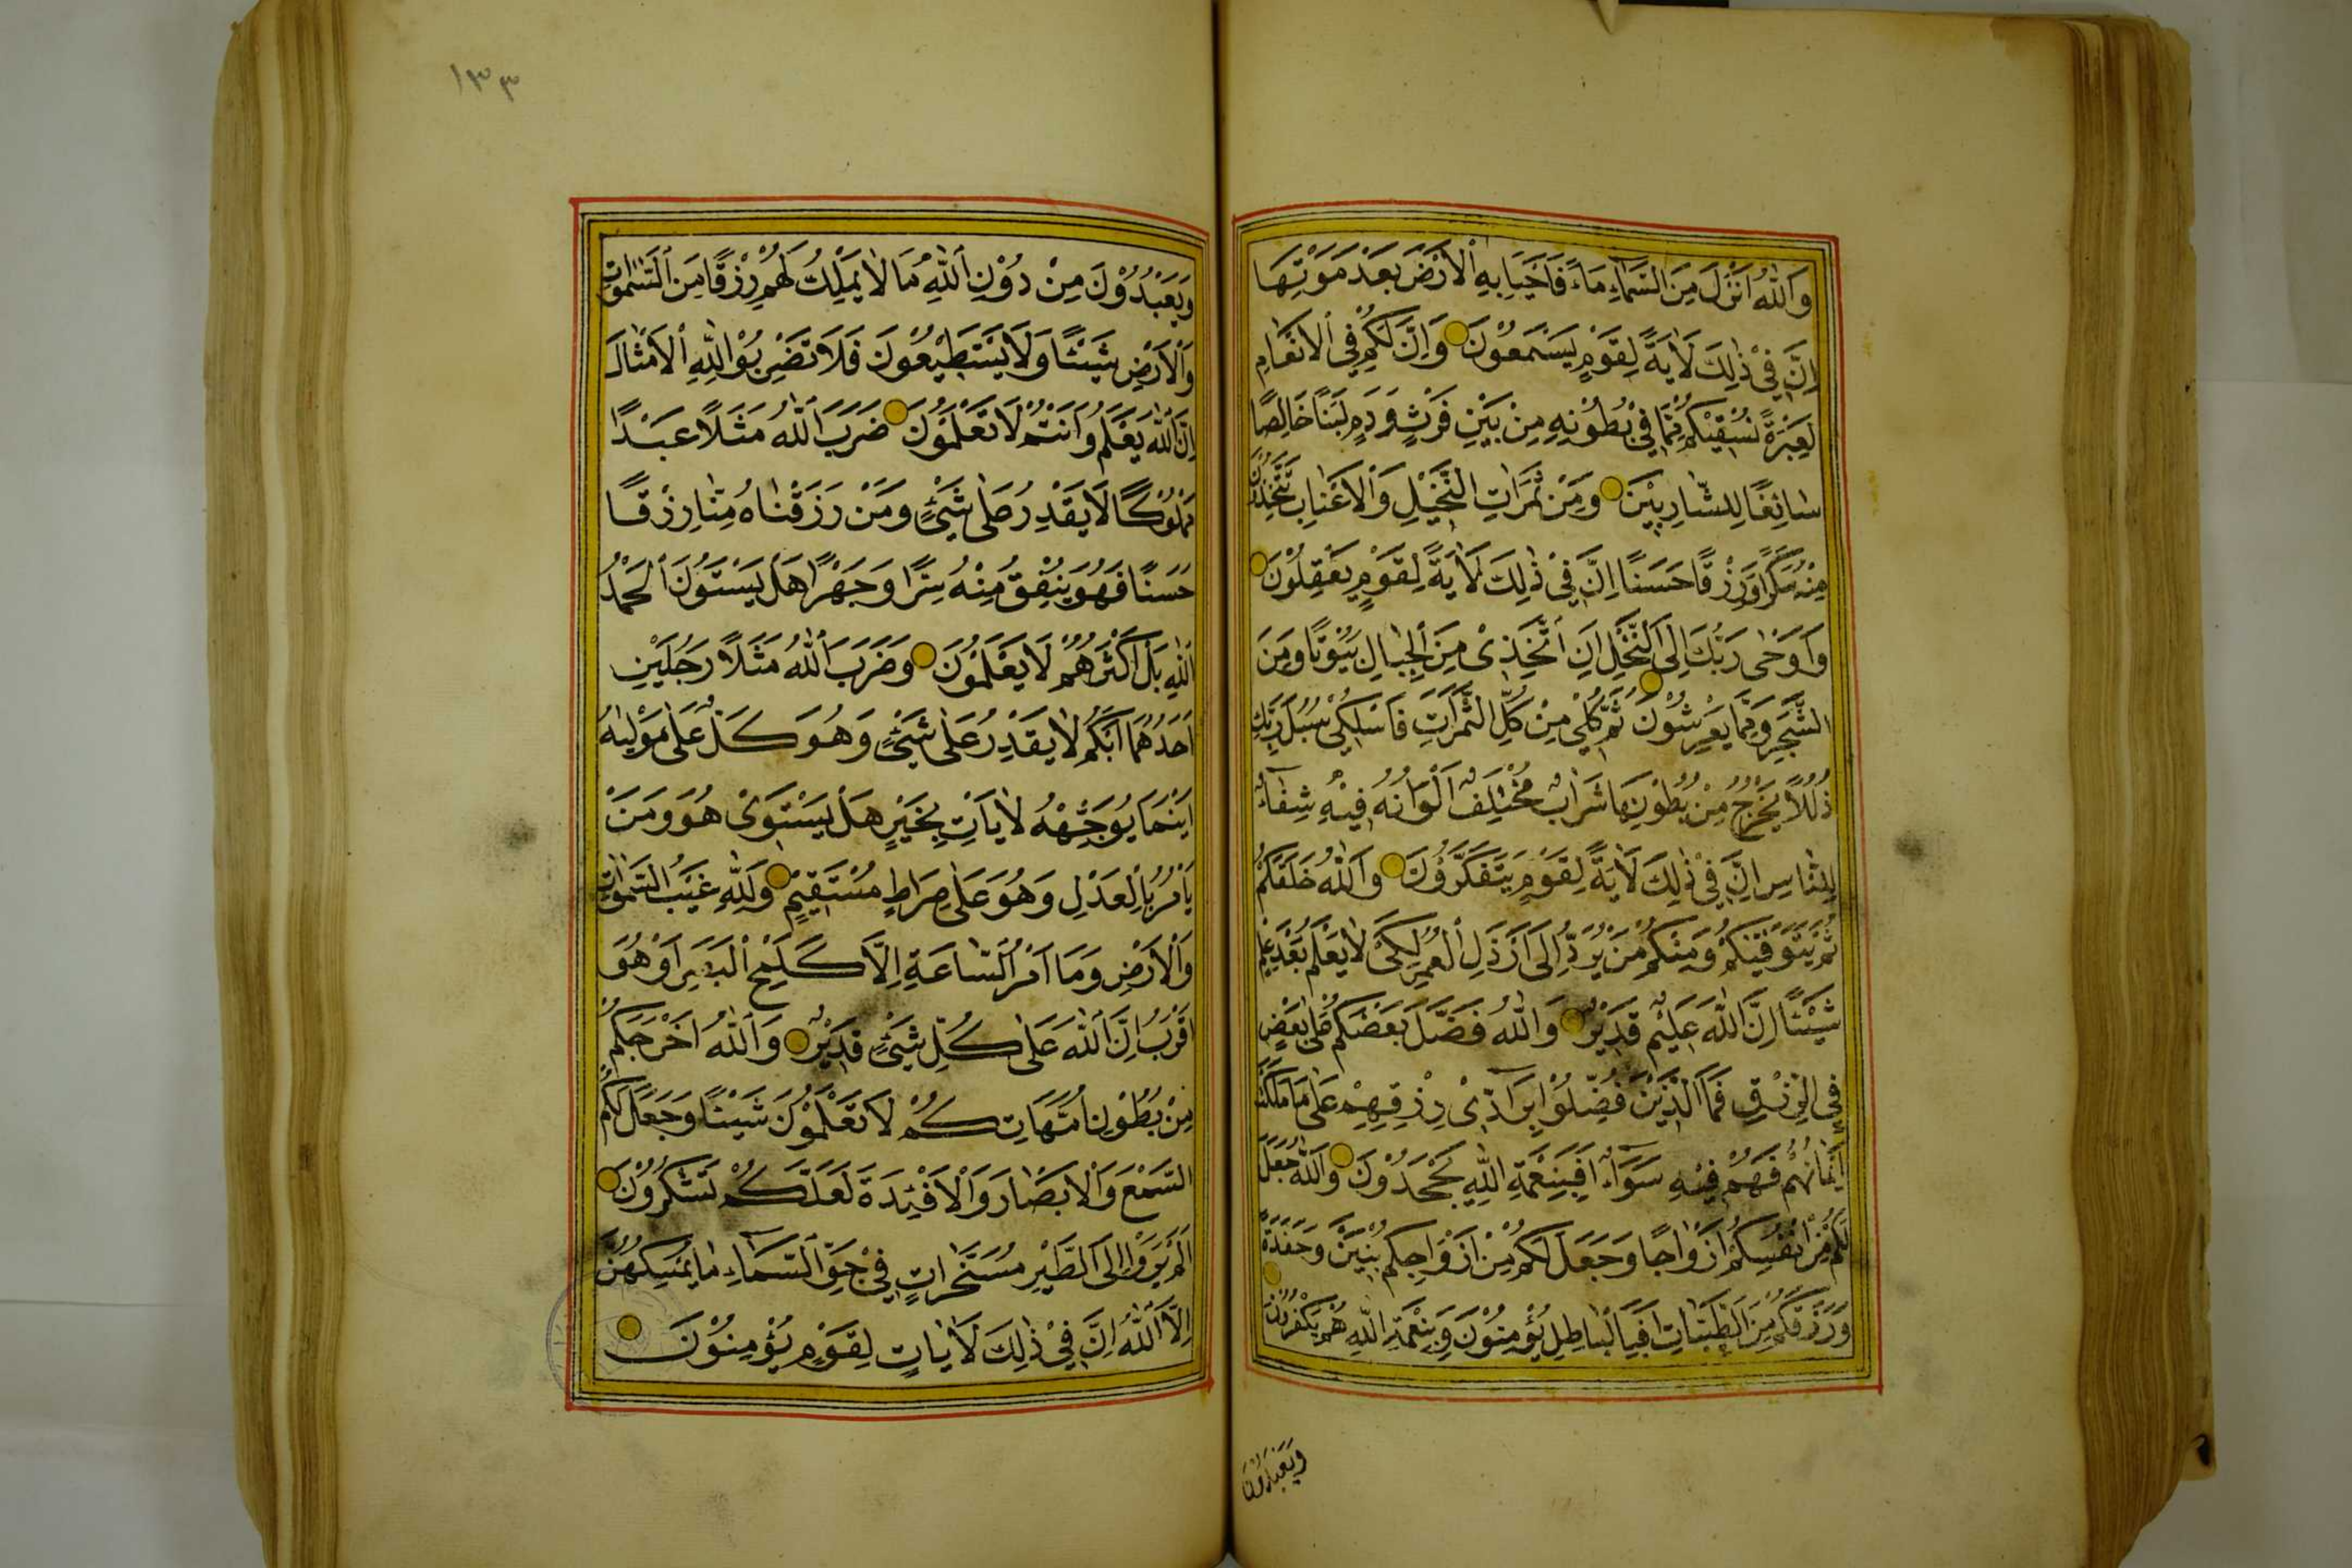 وَاللّٰهُ اَنْزَلَ مِنَ السَّمَآءِ مَآءً فَاَحْيَا بِهِ الْاَرْضَ بَعْدَ مَوْتِهَا
اِنَّ فِيْ ذٰلِكَ لَاٰيَةً لِقَوْمٍ يَسْمَعُوْنَ وَاِنَّ لَكُمْ فِي الْاَنْعَامِ
لَعِبْرَةً نُسْقِيْكُمْ مِمَّا فِيْ بُطُوْنِهِ مِنْ بَيْنِ فَرْثٍ وَدَمٍ لَبَنًا خَالِصًا
سَائِغًا لِلشَّارِبِيْنَ وَمِنْ ثَمَرَاتِ النَّخِيْلِ وَالْاَعْنَابِ تَتَّخِذُوْنَ
مِنْهُ سَكَرًا وَرِزْقًا حَسَنًا اِنَّ فِيْ ذٰلِكَ لَاٰيَةً لِقَوْمٍ يَعْقِلُوْنَ
وَاَوْحٰى رَبُّكَ اِلَى النَّحْلِ اَنِ اتَّخِذِيْ مِنَ الْجِبَالِ بُيُوْتًا وَمِنَ
الشَّجَرِ وَمِمَّا يَعْرِشُوْنَ ثُمَّ كُلِيْ مِنْ كُلِّ الثَّمَرَاتِ فَاسْلُكِيْ سُبُلَ رَبِّكِ
ذُلُلًا يَخْرُجُ مِنْ بُطُوْنِهَا شَرَابٌ مُخْتَلِفٌ اَلْوَانُهُ فِيْهِ شِفَآءٌ
لِلنَّاسِ اِنَّ فِيْ ذٰلِكَ لَاٰيَةً لِقَوْمٍ يَتَفَكَّرُوْنَ وَاللّٰهُ خَلَقَكُمْ
ثُمَّ يَتَوَفّٰيكُمْ وَمِنْكُمْ مَنْ يُرَدُّ اِلٰى اَرْذَلِ الْعُمُرِ لِكَيْ لَا يَعْلَمَ بَعْدَ عِلْمٍ
شَيْئًا اِنَّ اللّٰهَ عَلِيْمٌ قَدِيْرٌ وَاللّٰهُ فَضَّلَ بَعْضَكُمْ عَلٰى بَعْضٍ
فِي الرِّزْقِ فَمَا الَّذِيْنَ فُضِّلُوْا بِرَآدِّيْ رِزْقِهِمْ عَلٰى مَا مَلَكَتْ
اَيْمَانُهُمْ فَهُمْ فِيْهِ سَوَآءٌ اَفَبِنِعْمَةِ اللّٰهِ يَجْحَدُوْنَ وَاللّٰهُ جَعَلَ
لَكُمْ مِنْ اَنْفُسِكُمْ اَزْوَاجًا وَجَعَلَ لَكُمْ مِنْ اَزْوَاجِكُمْ بَنِيْنَ وَحَفَدَةً
وَرَزَقَكُمْ مِنَ الطَّيِّبَاتِ اَفَبِالْبَاطِلِ يُؤْمِنُوْنَ وَبِنِعْمَةِ اللّٰهِ هُمْ يَكْفُرُوْنَ
وَيَعْبُدُوْنَ
١٣٣
وَيَعْبُدُوْنَ مِنْ دُوْنِ اللّٰهِ مَا لَا يَمْلِكُ لَهُمْ رِزْقًا مِنَ السَّمٰوَاتِ
وَالْاَرْضِ شَيْئًا وَلَا يَسْتَطِيْعُوْنَ فَلَا تَضْرِبُوْا لِلّٰهِ الْاَمْثَالَ
اِنَّ اللّٰهَ يَعْلَمُ وَاَنْتُمْ لَا تَعْلَمُوْنَ ضَرَبَ اللّٰهُ مَثَلًا عَبْدًا
مَمْلُوْكًا لَا يَقْدِرُ عَلٰى شَيْءٍ وَمَنْ رَزَقْنَاهُ مِنَّا رِزْقًا
حَسَنًا فَهُوَ يُنْفِقُ مِنْهُ سِرًّا وَجَهْرًا هَلْ يَسْتَوُوْنَ اَلْحَمْدُ
لِلّٰهِ بَلْ اَكْثَرُهُمْ لَا يَعْلَمُوْنَ وَضَرَبَ اللّٰهُ مَثَلًا رَجُلَيْنِ
اَحَدُهُمَا اَبْكَمُ لَا يَقْدِرُ عَلٰى شَيْءٍ وَهُوَ كَلٌّ عَلٰى مَوْلٰيهُ
اَيْنَمَا يُوَجِّهْهُ لَا يَاْتِ بِخَيْرٍ هَلْ يَسْتَوِيْ هُوَ وَمَنْ
يَاْمُرُ بِالْعَدْلِ وَهُوَ عَلٰى صِرَاطٍ مُسْتَقِيْمٍ وَلِلّٰهِ غَيْبُ السَّمٰوَاتِ
وَالْاَرْضِ وَمَا اَمْرُ السَّاعَةِ اِلَّا كَلَمْحِ الْبَصَرِ اَوْ هُوَ
اَقْرَبُ اِنَّ اللّٰهَ عَلٰى كُلِّ شَيْءٍ قَدِيْرٌ وَاللّٰهُ اَخْرَجَكُمْ
مِنْ بُطُوْنِ اُمَّهَاتِكُمْ لَا تَعْلَمُوْنَ شَيْئًا وَجَعَلَ لَكُمُ
السَّمْعَ وَالْاَبْصَارَ وَالْاَفْئِدَةَ لَعَلَّكُمْ تَشْكُرُوْنَ
اَلَمْ يَرَوْا اِلَى الطَّيْرِ مُسَخَّرَاتٍ فِيْ جَوِّ السَّمَآءِ مَا يُمْسِكُهُنَّ
اِلَّا اللّٰهُ اِنَّ فِيْ ذٰلِكَ لَاٰيَاتٍ لِقَوْمٍ يُؤْمِنُوْنَ